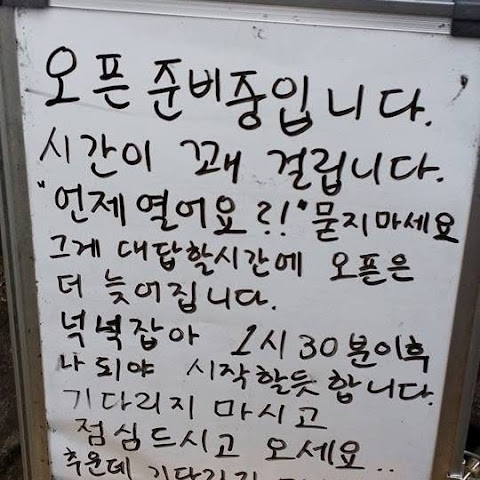 오픈 준비중입니다.
시간이 꽤 걸립니다.
"언제 열어요?!" 묻지마세요
그게 대답할시간에 오픈은
더 늦어집니다.
넉넉잡아 1시 30분이후
나 되야 시작할듯 합니다.
기다리지 마시고
점심드시고 오세요..
추운데 기다리지